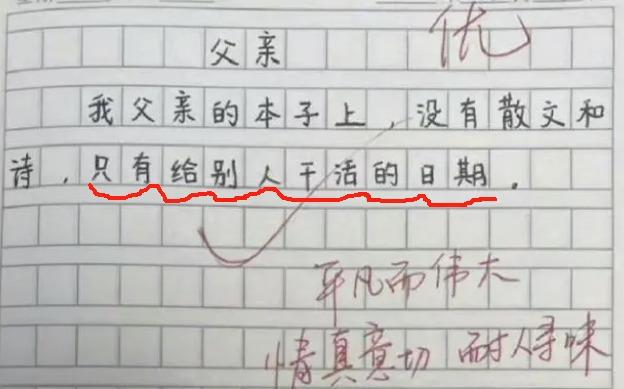 优
父亲
我父亲的本子上，没有散文和
诗，只有给别人干活的日期。
平凡而伟大
情真意切 耐人寻味